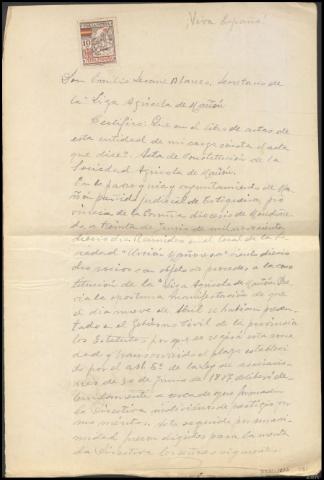 ¡Viva España!
Don Emilio Blanco, Secretario de
la "Liga Agrícola de Mañón"
Certifico: Que en el libro de actas de
esta entidad de mi cargo consta el acta
que dice: "Acta de Constitución de la
Sociedad Agrícola de Mañón.
En la parroquia y ayuntamiento de Ma
ñón partido judicial de Ortigueira pro
vincia de la Coruña diócesis de Mondoñe
do, a treinta de Junio de mil novecientos
Reunidos en el local de la So
ciedad "Unión Mañonesa"
socios con objeto de proceder a la cons
titución de la "Liga Agrícola de Mañón"
la oportuna manifestación de que
el día nueve de Abril se habían presen
tado en el Gobierno Civil de la provincia
los Estatutos por que se regirá esta socie
dad y transcurrido el plazo estableci
do por el art. 5º de la Ley de asociacio
nes de 30 de Junio de 1887
acerca de que formaran
la Directiva individuos de prestigio
sus méritos. Acto seguido por unani
midad fueron elegidos para la
Directiva los señores siguientes: